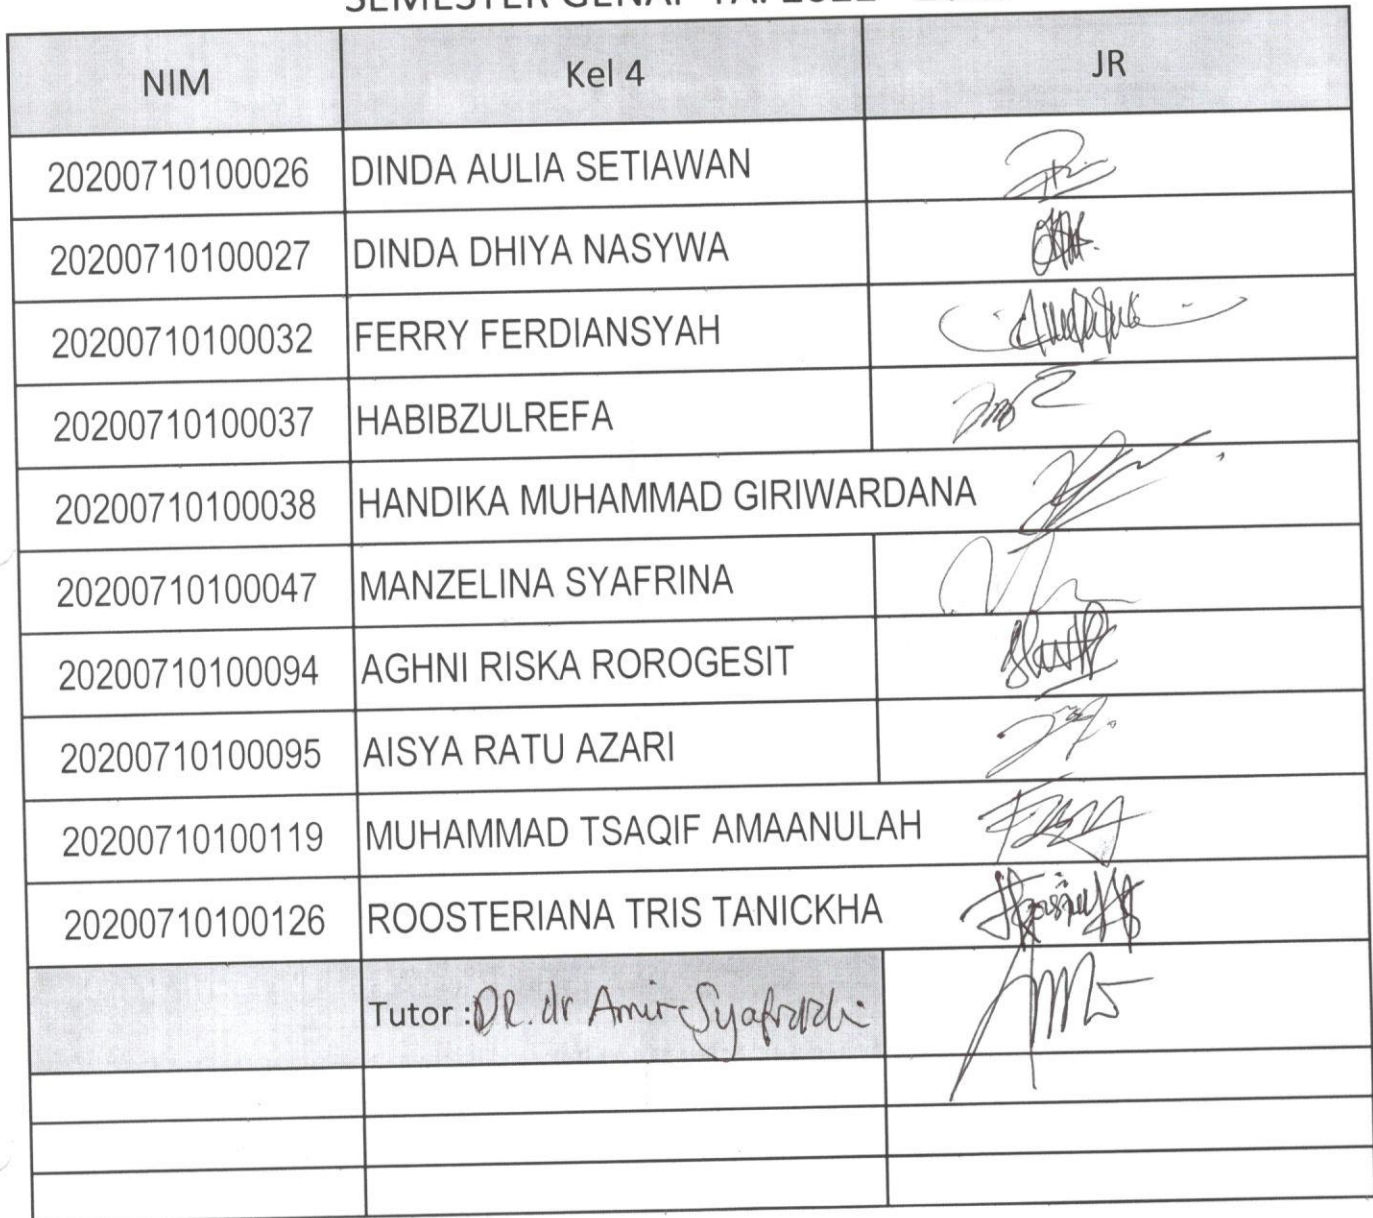 SEMESTER GENAP TA. 2022
NIM Kel 4 JR
20200710100026 DINDA AULIA SETIAWAN
20200710100027 DINDA DHIYA NASYWA
20200710100032 FERRY FERDIANSYAH
20200710100037 HABIBZULREFA
20200710100038 HANDIKA MUHAMMAD GIRIWARDANA
20200710100047 MANZELINA SYAFRINA
20200710100094 AGHNI RISKA ROROGESIT
20200710100095 AISYA RATU AZARI
20200710100119 MUHAMMAD TSAQIF AMAANULAH
20200710100126 ROOSTERIANA TRIS TANICKHA
Tutor : DR. dr Amir Syafruddin